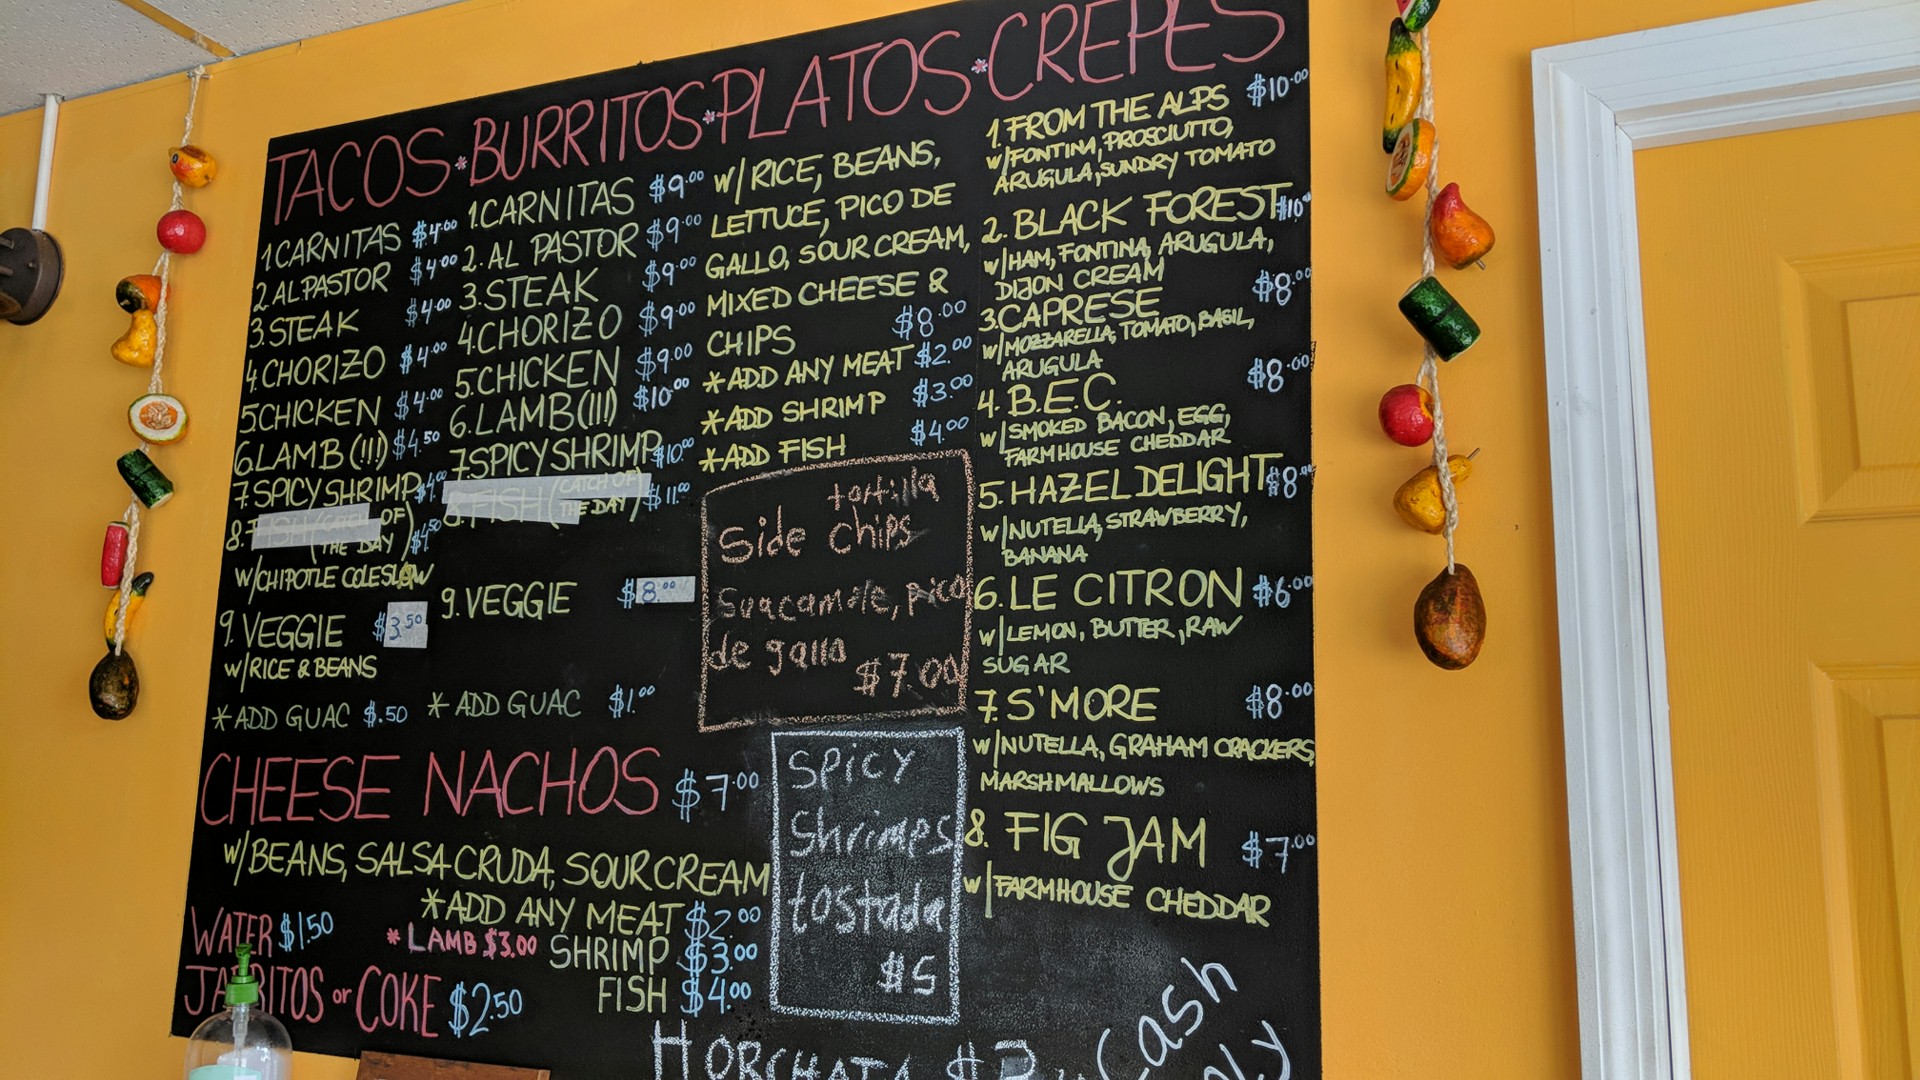 TACOS * BURRITOS * PLATOS * CREPES
1 CARNITAS $4.00
2. AL PASTOR $4.00
3. STEAK $4.00
4. CHORIZO $4.00
5. CHICKEN $4.00
6. LAMB (!!!) $4.50
7. SPICY SHRIMP $4.00
8. FISH (CATCH OF
THE DAY) $4.50
W/CHIPOTLE COLESLAW
9. VEGGIE $3.50
W/RICE & BEANS
* ADD GUAC $.50
1. CARNITAS $9.00
2. AL PASTOR $9.00
3. STEAK $9.00
4. CHORIZO $9.00
5. CHICKEN $9.00
6. LAMB (!!!) $10.00
7. SPICY SHRIMP $10.00
8. FISH (CATCH OF
THE DAY) $11.00
9. VEGGIE $8.00
* ADD GUAC $1.00
W/ RICE, BEANS,
LETTUCE, PICO DE
GALLO, SOUR CREAM,
MIXED CHEESE &
CHIPS $8.00
* ADD ANY MEAT $2.00
* ADD SHRIMP $3.00
* ADD FISH $4.00
tortilla
Side chips
Guacamole, pico
de gallo
$7.00
1. FROM THE ALPS $10.00
W/FONTINA, PROSCIUTTO,
ARUGULA, SUNDRY TOMATO
2. BLACK FOREST $10.00
W/HAM, FONTINA, ARUGULA,
DIJON CREAM
3. CAPRESE $8.00
W/MOZZARELLA, TOMATO, BASIL,
ARUGULA
4. B.E.C. $8.00
W/SMOKED BACON, EGG,
FARMHOUSE CHEDDAR
5. HAZEL DELIGHT $8.00
W/NUTELLA, STRAWBERRY,
BANANA
6. LE CITRON $6.00
W/LEMON, BUTTER, RAW
SUGAR
7. S'MORE $8.00
W/NUTELLA, GRAHAM CRACKERS,
MARSHMALLOWS
8. FIG JAM $7.00
W/FARMHOUSE CHEDDAR
CHEESE NACHOS $7.00
W/BEANS, SALSA CRUDA, SOUR CREAM
* ADD ANY MEAT $2.00
* LAMB $3.00 SHRIMP $3.00
FISH $4.00
WATER $1.50
JARRITOS or COKE $2.50
Spicy
Shrimps
tostada
$5
HORCHATA
Cash